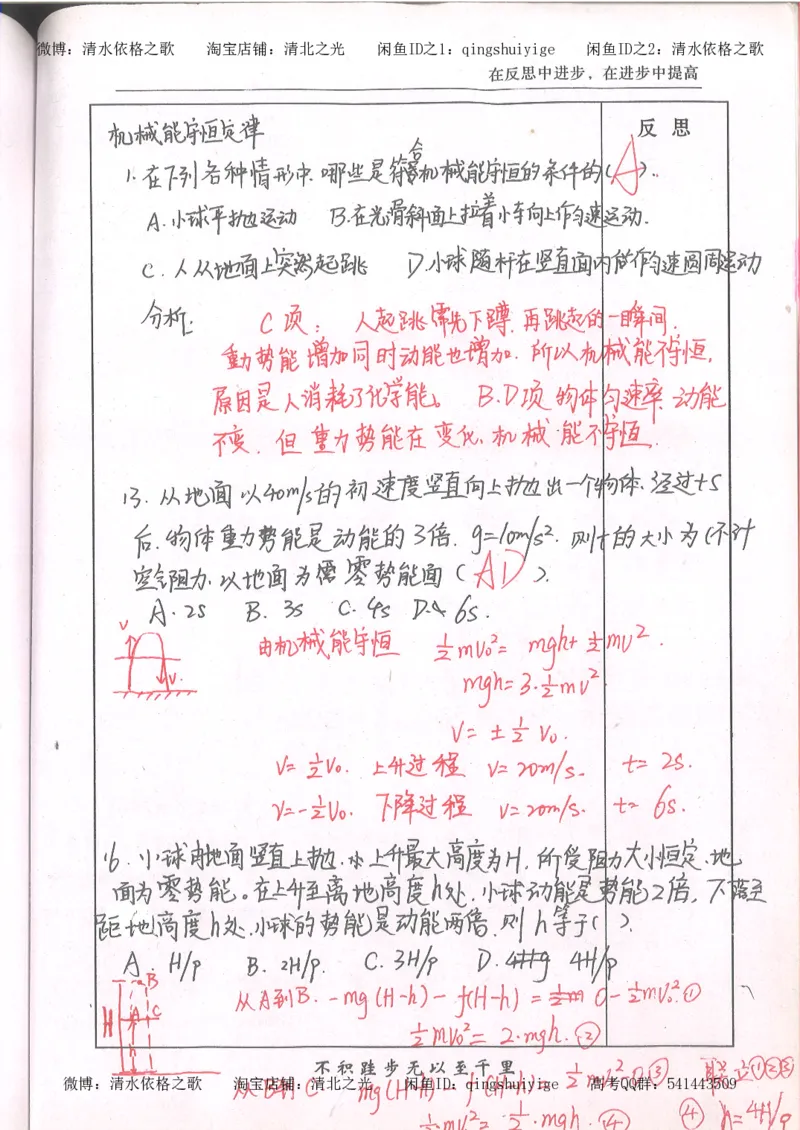 微博：清水依格之歌 淘宝店铺：清北之光 闲鱼ID之1：qingshuiyige 闲鱼ID之2：清水依格之歌
在反思中进步，在进步中提高
反 思
机械能守恒定律
1. 在下列各种情形中，哪些是符合机械能守恒的条件的( A ).
A. 小球平抛运动 B. 在光滑斜面上拉着小车向上作匀速运动.
C. 人从地面上突然起跳 D. 小球随杆在竖直面内做作匀速圆周运动
分析: C项： 人起跳需先下蹲, 再跳起的一瞬间,
重力势能增加同时动能也增加. 所以机械能不守恒,
原因是人消耗了化学能。 B.D项 物体匀速率 动能
不变, 但重力势能在变化, 机械能不守恒.
13. 从地面以40m/s的初速度竖直向上抛出一个物体, 经过t s
后, 物体重力势能是动能的3倍, g=10m/s². 则t的大小为(不计
空气阻力, 以地面为零势能面 ( AD ).
A. 2s B. 3s C. 4s D. 6s.
由机械能守恒 ½mv₀² = mgh + ½mv².
v
v.
mgh = 3·½mv².
v = ±½v₀.
v = ½v₀. 上升过程 v = 20m/s. t = 2s.
v = -½v₀. 下降过程 v = 20m/s. t = 6s.
16. 小球由地面竖直上抛, 上升最大高度为H, 所受阻力大小恒定, 地
面为零势能。在上升至离地高度h处, 小球动能是势能2倍, 下落至
距地高度h处, 小球的势能是动能两倍, 则h等于( ).
A. H/9 B. 2H/9. C. 3H/9 D. 4H/9
B
A C
H
h
从A到B. -mg(H-h) - f(H-h) = 0 - ½mv₀². ①
½mv₀² = 2·mgh. ②
不积跬步无以至千里
微博：清水依格之歌 淘宝店铺：清北之光 闲鱼ID：qingshuiyige 高考QQ群：541443509
从B到C mg(H-h) - f(H-h) = ½mv² - 0 ③ 联立①②③
½mv² = ½·mgh. ④ ④ h = 4H/9